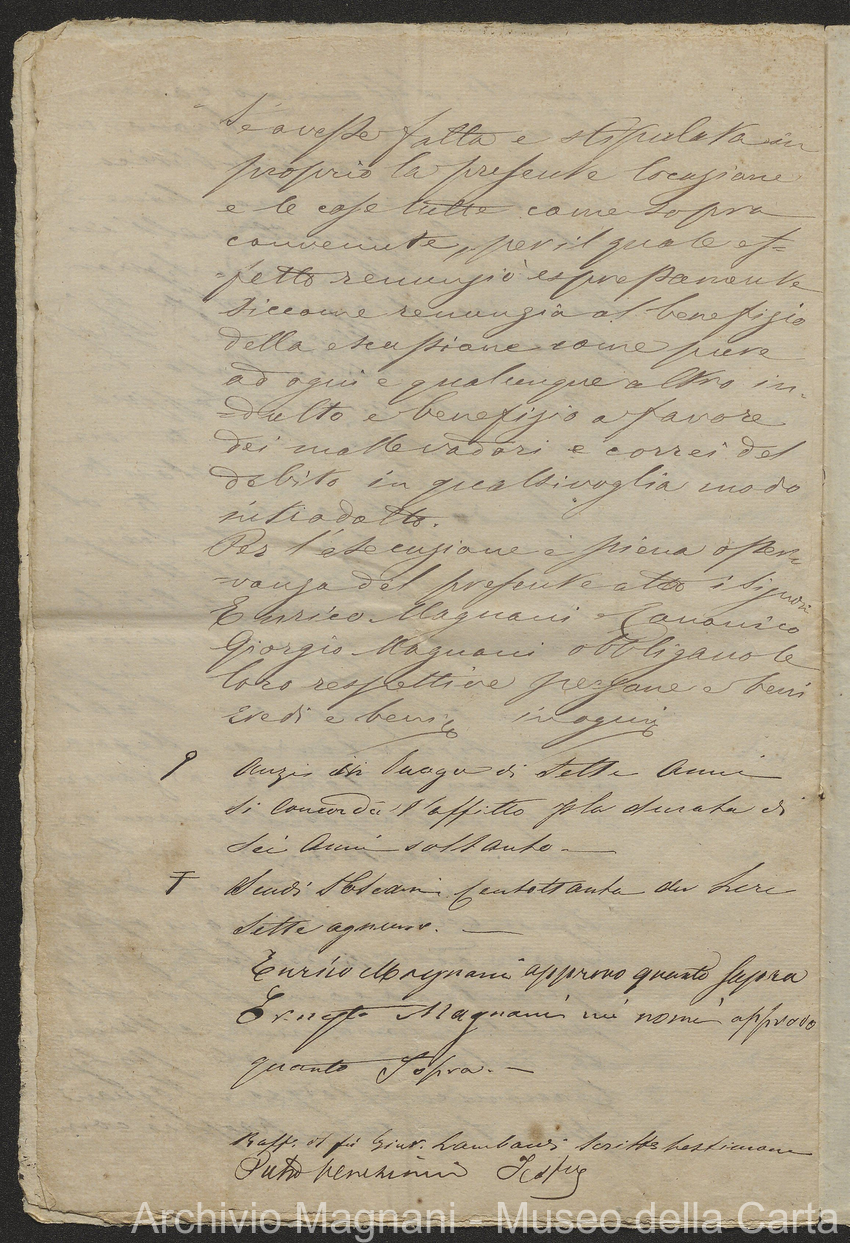 s'avesse fatta e stipulata in
proprio la presente locazione
e le cose tutte come sopra
convenute, per il quale ef=
=fetto renunziò espressamente
siccome renunzia al benefizio
della escussione come pure
ad ogni e qualunque altro in=
=dulto e benefizio a favore
dei mallevadori e correi del
debito in qualsivoglia modo
introdotto.
Per l'esecuzione e piena osser=
=vanza del presente atto i Signori
Enrico Magnani e Canonico
Giorgio Magnani obbligano le
loro respettive persone e beni
eredi e beni in ogni
Anzi in luogo di sette anni
si concorda l'affitto p la durata di
sei anni soltanto. —
Scudi centottanta da Lire
sette ognuno. —
Enrico Magnani approvo quanto sopra
Ernesto Magnani nei nomi approvo
quanto Sopra. —
Raff. del fu Giu. testimone
Pietro
Archivio Magnani - Museo della Carta